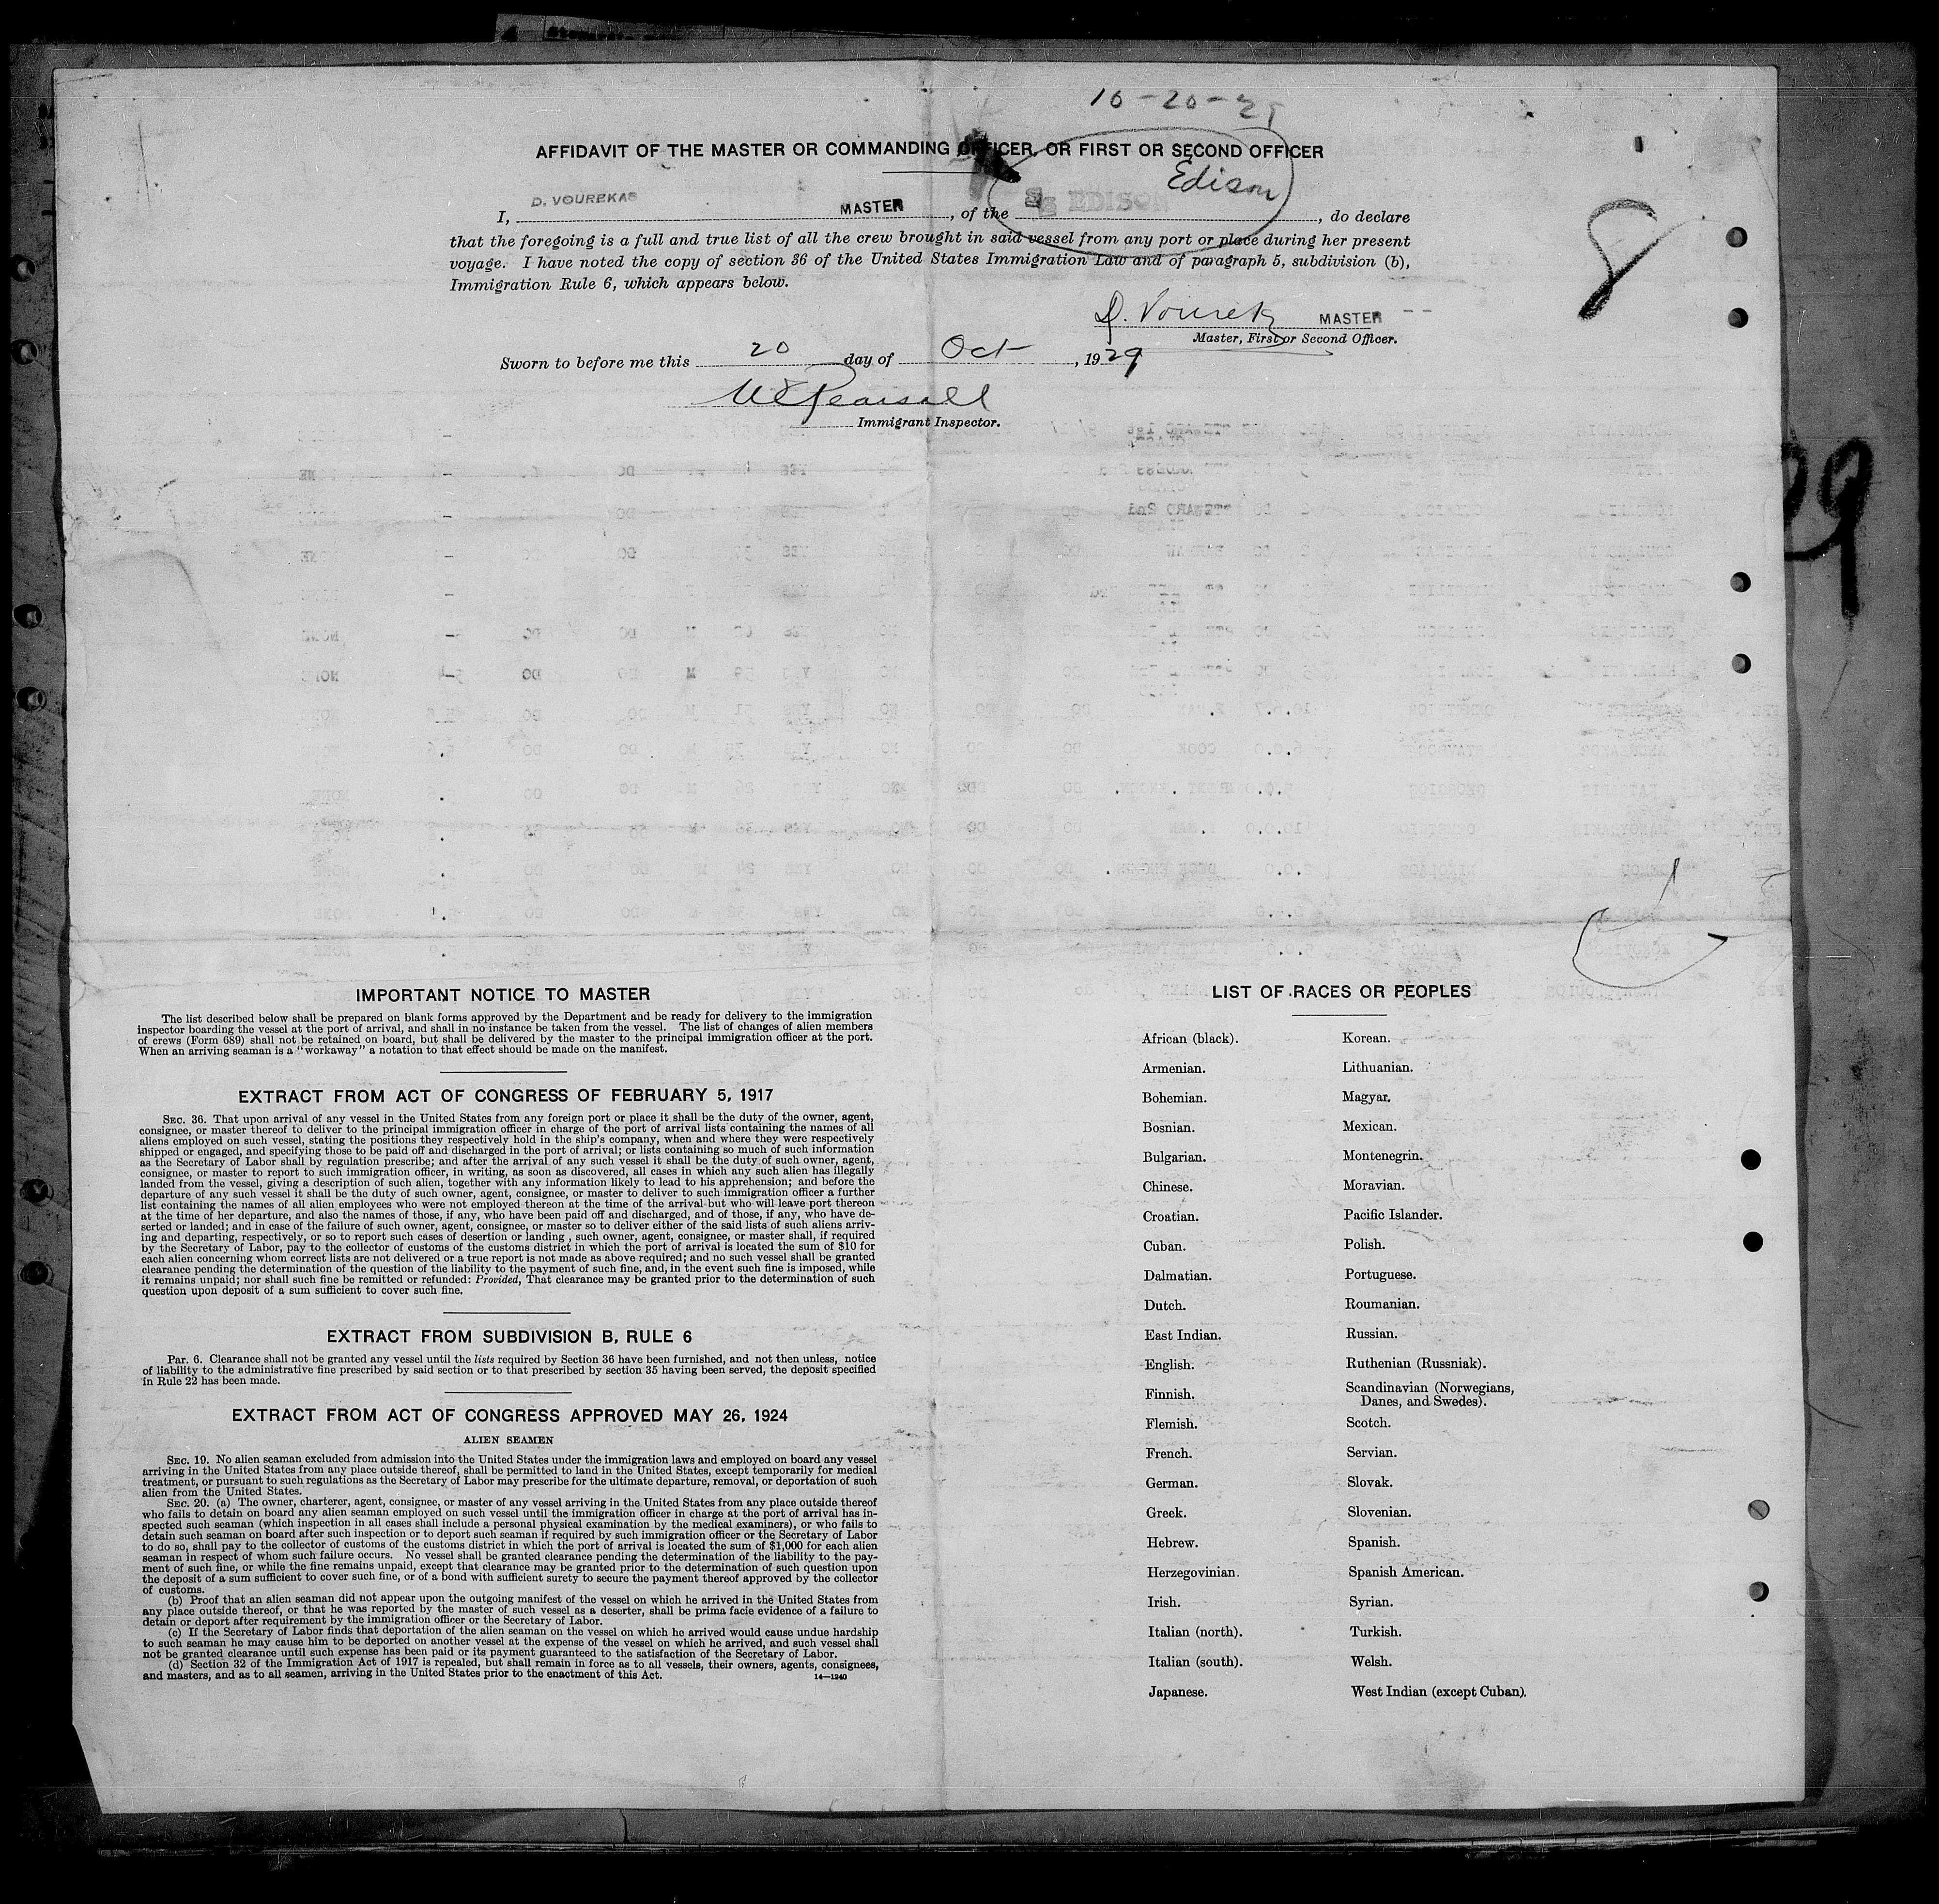 10-20-29
AFFIDAVIT OF THE MASTER OR COMMANDING OFFICER, OR FIRST OR SECOND OFFICER
Edison
I, D. VOUREKAS MASTER, of the SS EDISON, do declare
that the foregoing is a full and true list of all the crew brought in said vessel from any port or place during her present
voyage. I have noted the copy of section 36 of the United States Immigration Law and of paragraph 5, subdivision (b),
Immigration Rule 6, which appears below.
8
D. Vourek MASTER
Master, First or Second Officer.
Sworn to before me this 20 day of Oct, 1929
W E Pearsall
Immigrant Inspector.
IMPORTANT NOTICE TO MASTER
The list described below shall be prepared on blank forms approved by the Department and be ready for delivery to the immigration
inspector boarding the vessel at the port of arrival, and shall in no instance be taken from the vessel. The list of changes of alien members
of crews (Form 689) shall not be retained on board, but shall be delivered by the master to the principal immigration officer at the port.
When an arriving seaman is a "workaway" a notation to that effect should be made on the manifest.
EXTRACT FROM ACT OF CONGRESS OF FEBRUARY 5, 1917
SEC. 36. That upon arrival of any vessel in the United States from any foreign port or place it shall be the duty of the owner, agent,
consignee, or master thereof to deliver to the principal immigration officer in charge of the port of arrival lists containing the names of all
aliens employed on such vessel, stating the positions they respectively hold in the ship's company, when and where they were respectively
shipped or engaged, and specifying those to be paid off and discharged in the port of arrival; or lists containing so much of such information
as the Secretary of Labor shall by regulation prescribe; and after the arrival of any such vessel it shall be the duty of such owner, agent,
consignee, or master to report to such immigration officer, in writing, as soon as discovered, all cases in which any such alien has illegally
landed from the vessel, giving a description of such alien, together with any information likely to lead to his apprehension; and before the
departure of any such vessel it shall be the duty of such owner, agent, consignee, or master to deliver to such immigration officer a further
list containing the names of all alien employees who were not employed thereon at the time of the arrival but who will leave port thereon
at the time of her departure, and also the names of those, if any, who have been paid off and discharged, and of those, if any, who have de-
serted or landed; and in case of the failure of such owner, agent, consignee, or master so to deliver either of the said lists of such aliens arriv-
ing and departing, respectively, or so to report such cases of desertion or landing , such owner, agent, consignee, or master shall, if required
by the Secretary of Labor, pay to the collector of customs of the customs district in which the port of arrival is located the sum of $10 for
each alien concerning whom correct lists are not delivered or a true report is not made as above required; and no such vessel shall be granted
clearance pending the determination of the question of the liability to the payment of such fine, and, in the event such fine is imposed, while
it remains unpaid; nor shall such fine be remitted or refunded: Provided, That clearance may be granted prior to the determination of such
question upon deposit of a sum sufficient to cover such fine.
EXTRACT FROM SUBDIVISION B, RULE 6
Par. 6. Clearance shall not be granted any vessel until the lists required by Section 36 have been furnished, and not then unless, notice
of liability to the administrative fine prescribed by said section or to that prescribed by section 35 having been served, the deposit specified
in Rule 22 has been made.
EXTRACT FROM ACT OF CONGRESS APPROVED MAY 26, 1924
ALIEN SEAMEN
SEC. 19. No alien seaman excluded from admission into the United States under the immigration laws and employed on board any vessel
arriving in the United States from any place outside thereof, shall be permitted to land in the United States, except temporarily for medical
treatment, or pursuant to such regulations as the Secretary of Labor may prescribe for the ultimate departure, removal, or deportation of such
alien from the United States.
SEC. 20. (a) The owner, charterer, agent, consignee, or master of any vessel arriving in the United States from any place outside thereof
who fails to detain on board any alien seaman employed on such vessel until the immigration officer in charge at the port of arrival has in-
spected such seaman (which inspection in all cases shall include a personal physical examination by the medical examiners), or who fails to
detain such seaman on board after such inspection or to deport such seaman if required by such immigration officer or the Secretary of Labor
to do so, shall pay to the collector of customs of the customs district in which the port of arrival is located the sum of $1,000 for each alien
seaman in respect of whom such failure occurs. No vessel shall be granted clearance pending the determination of the liability to the pay-
ment of such fine, or while the fine remains unpaid, except that clearance may be granted prior to the determination of such question upon
the deposit of a sum sufficient to cover such fine, or of a bond with sufficient surety to secure the payment thereof approved by the collector
of customs.
(b) Proof that an alien seaman did not appear upon the outgoing manifest of the vessel on which he arrived in the United States from
any place outside thereof, or that he was reported by the master of such vessel as a deserter, shall be prima facie evidence of a failure to
detain or deport after requirement by the immigration officer or the Secretary of Labor.
(c) If the Secretary of Labor finds that deportation of the alien seaman on the vessel on which he arrived would cause undue hardship
to such seaman he may cause him to be deported on another vessel at the expense of the vessel on which he arrived, and such vessel shall
not be granted clearance until such expense has been paid or its payment guaranteed to the satisfaction of the Secretary of Labor.
(d) Section 32 of the Immigration Act of 1917 is repealed, but shall remain in force as to all vessels, their owners, agents, consignees,
and masters, and as to all seamen, arriving in the United States prior to the enactment of this Act.
14—1240
LIST OF RACES OR PEOPLES
African (black).
Armenian.
Bohemian.
Bosnian.
Bulgarian.
Chinese.
Croatian.
Cuban.
Dalmatian.
Dutch.
East Indian.
English.
Finnish.
Flemish.
French.
German.
Greek.
Hebrew.
Herzegovinian.
Irish.
Italian (north).
Italian (south).
Japanese.
Korean.
Lithuanian.
Magyar.
Mexican.
Montenegrin.
Moravian.
Pacific Islander.
Polish.
Portuguese.
Roumanian.
Russian.
Ruthenian (Russniak).
Scandinavian (Norwegians,
Danes, and Swedes).
Scotch.
Servian.
Slovak.
Slovenian.
Spanish.
Spanish American.
Syrian.
Turkish.
Welsh.
West Indian (except Cuban).